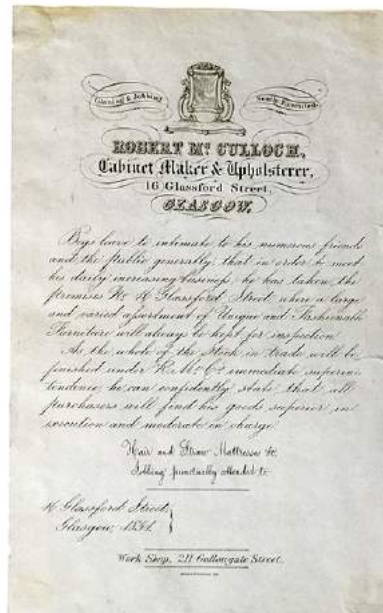 Turning & Jobbing
Neatly Executed.
ROBERT Mc CULLOCH,
Cabinet Maker & Upholsterer,
16 Glassford Street,
GLASGOW,
Begs leave to intimate to his numerous friends
and the public generally, that in order to meet
his daily increasing business, he has taken the
premises No. 16 Glassford Street where a large
and varied assortment of Unique and Fashionable
Furniture will always be kept for inspection
As the whole of the Stock in trade will be
finished under R. Mc Cs. immediate superin-
tendence, he can confidently state that all
purchasers will find his goods superior in
execution and moderate in charge
Hair and Straw Mattresses &c.
Jobbing punctually attended to
16 Glassford Street,
Glasgow,
Work Shop, 211 Gallowgate Street.